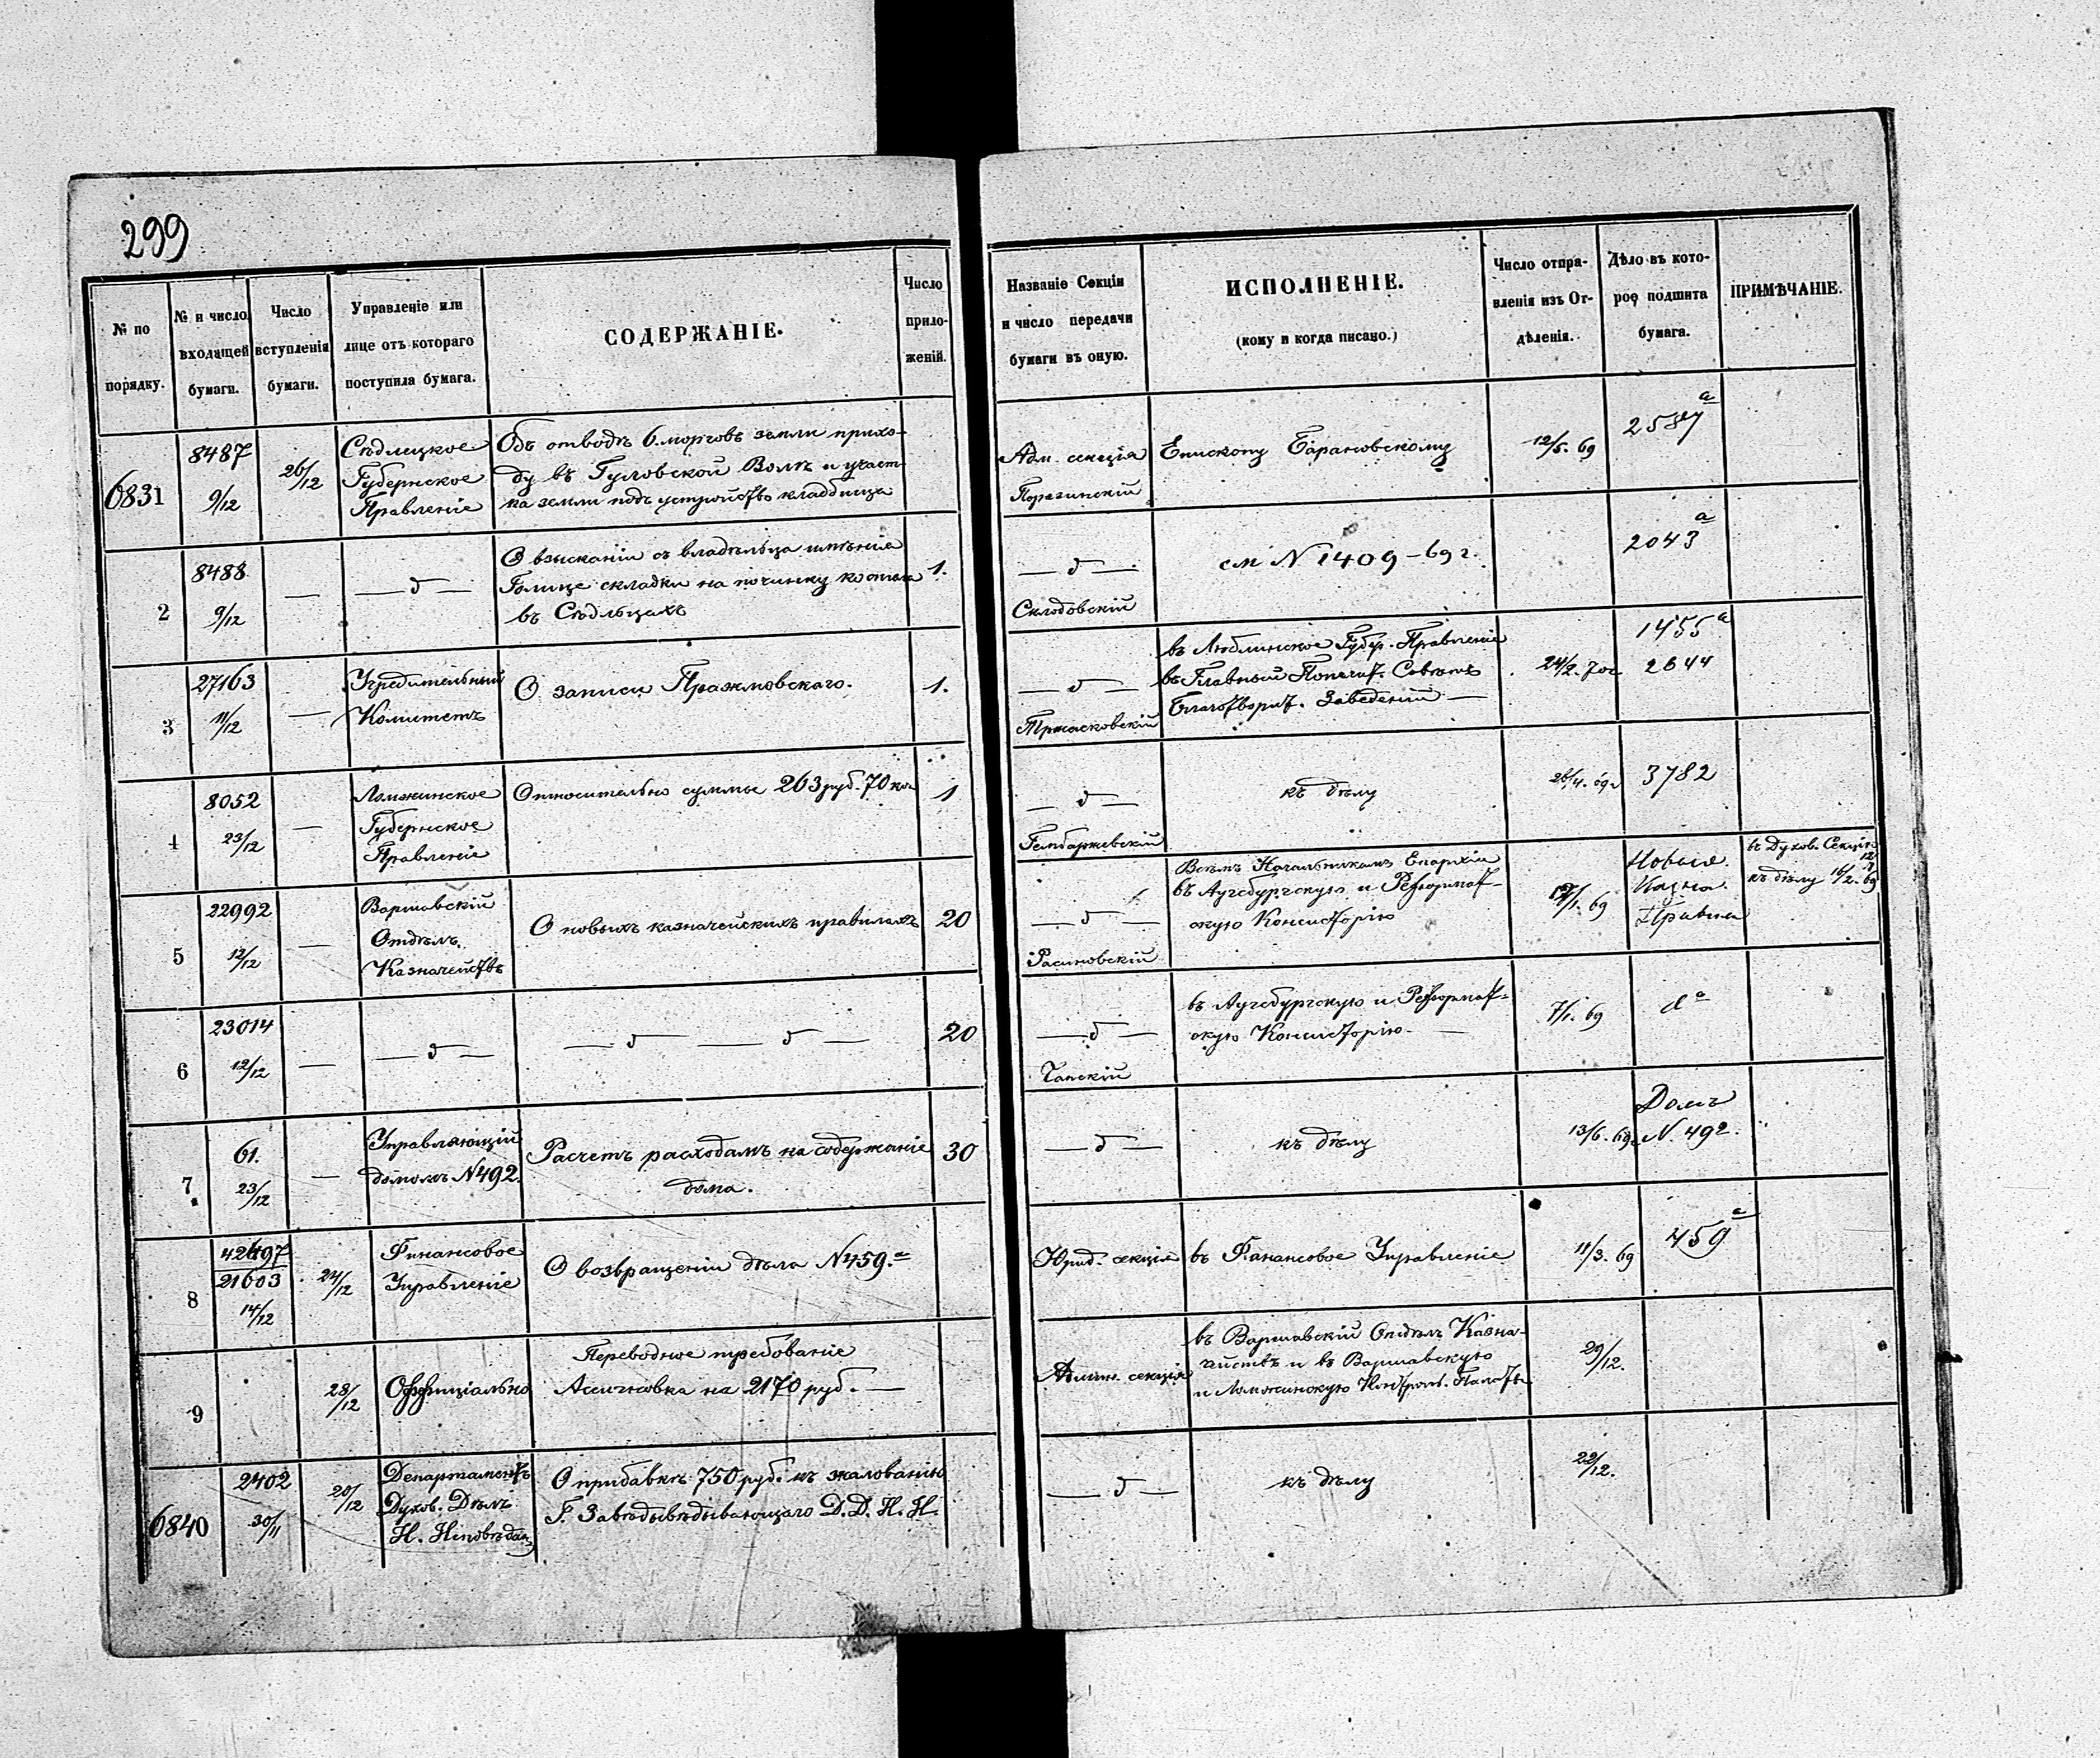 299
№ по порядку.
№ и число входящей бумаги.
Число вступленія бумаги.
Управленіе или лице отъ котораго поступила бумага.
СОДЕРЖАНІЕ.
Число приложеній.
Названіе Секціи и число передачи бумаги въ оную.
ИСПОЛНЕНІЕ.
(кому и когда писано.)
Число отправленія изъ Отдѣленія.
Дѣло въ которое подшита бумага.
ПРИМѢЧАНІЕ.
6831
8487
9/12
26/12
Сѣдлецкое
Губернское
Правленіе
Объ отводѣ 6 морговъ земли прихо-
ду въ Гуловской Волѣ и участ-
ка земли подъ устройство кладбища
Адм. секція
Епископу Барановскому
12/5. 69
2587 а
2
8488
9/12
—
— д —
О взысканіи съ владѣльца имѣнія
Голице складки на починку костела
въ Сѣдльцахъ
1.
— д —
Склодовскій
см N 1409 – 69 г.
2043 а
3
27163
11/12
—
Учредительный
Комитетъ
О записи Пражмовскаго.
1.
— д —
въ Люблинское Губер. Правленіе
въ Главный Попечит. Совѣтъ
Благотворит. Заведеній —
24/2. 70 г
1455 а
2644
4
8052
23/12
—
Ломжинское
Губернское
Правленіе
Относительно суммы 263 руб. 70 ко
1
— д —
Гембаржевскій
къ дѣлу
26/4. 69 г
3782
5
22992
12/12
—
Варшавскій
Отдѣлъ
Казначействъ
О новыхъ казначейскихъ правилахъ
20
— д —
Расиновскій
Всѣмъ Начальникамъ Епархіи
въ Аугсбургскую и Реформат-
скую Консисторію
/1. 69
Новыя
Казна.
Правила
въ Духов. Секцію
къ дѣлу 16/2. 69
6
23014
12/12
—
— д —
— д — — д —
20
— д —
Чапскій
въ Аугсбургскую и Реформат-
скую Консисторію. —
7/1. 69
d o
7
61.
23/12
—
Управляющій
домомъ N 492.
Расчетъ расходамъ на содержаніе
дома.
30
— д —
къ дѣлу
13/6. 69
Домъ
N. 492.
8
21603
14/12
24/12
Финансовое
Управленіе
О возвращеніи дѣла N 459. а
Юрид. секція
въ Финансовое Управленіе
11/3. 69
459 а
9
28/12
Оффиціально
Переводное требованіе
Ассигновка на 2170 руб. —
Админ. секція
въ Варшавскій Отдѣлъ Казна-
чействъ и въ Варшавскую
и Ломжинскую Контрол. Палаты
29/12.
6840
2402
30/11
20/12
Департаментъ
Духов. Дѣлъ
И. Исповѣданій
О прибавкѣ 750 руб. къ жалованію
Г. Завѣдывѣдывающаго Д. Д. И. И.
— д —
къ дѣлу
22/12.